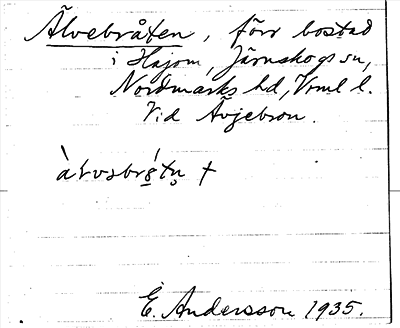 Älvebråten, förr bostad
i Hajom, Järnskogs sn,
Nordmarks hd, Vrml l.
Vid Ävjebron.
†
E. Andersson 1935.